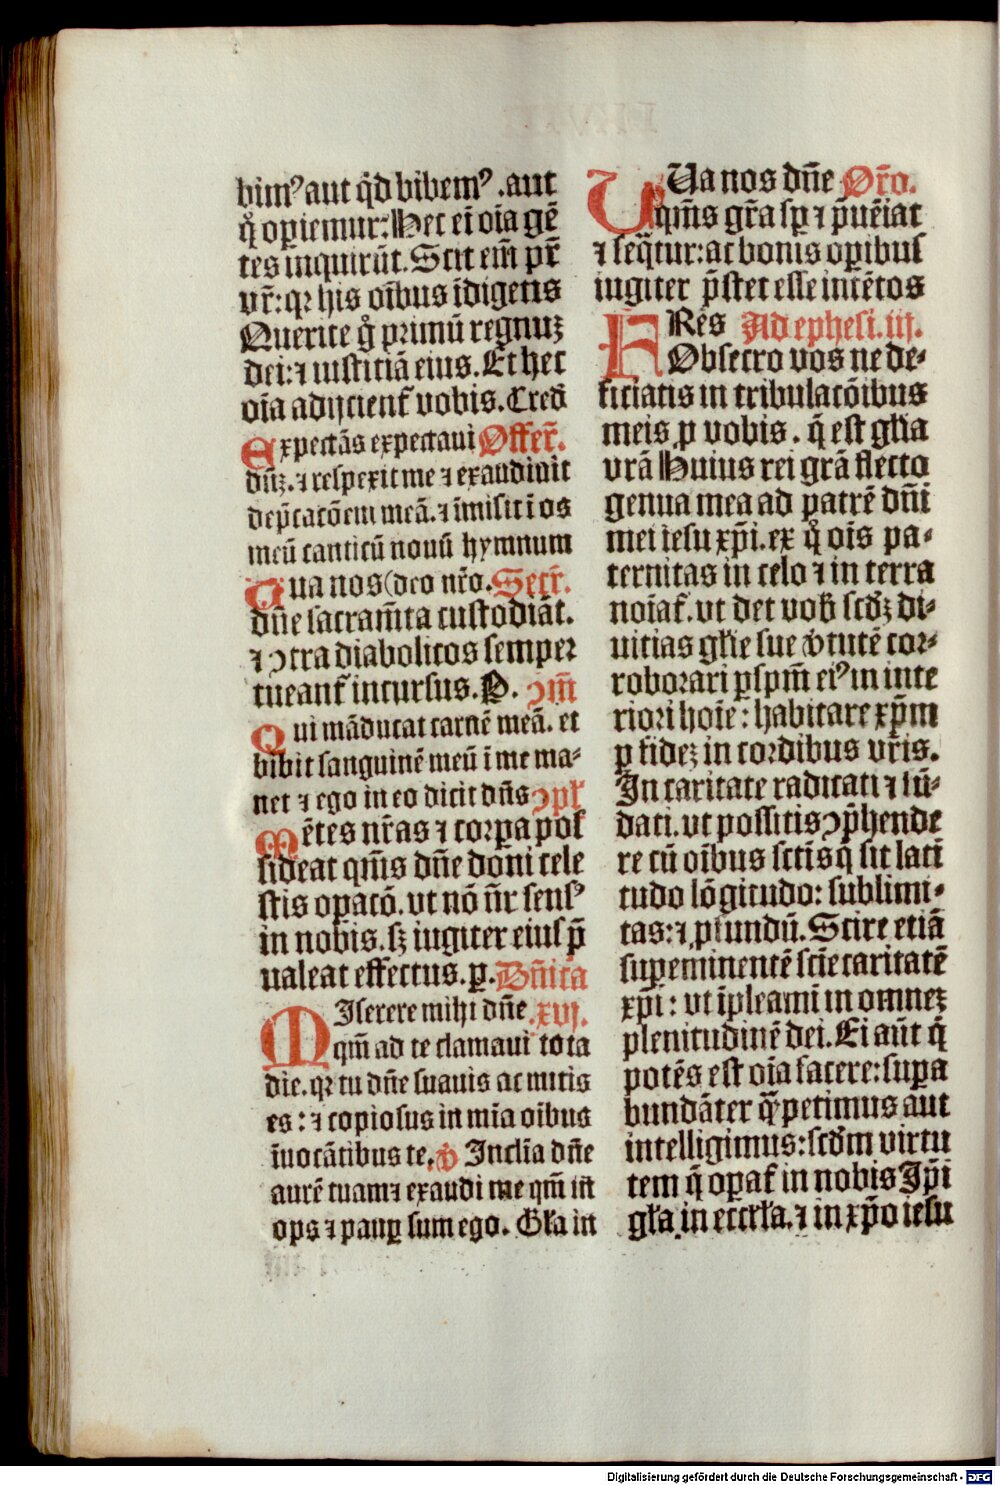 bimꝰ aut q̇d bibemꝰ .aut
q̊ opiemur: Hec ei̅ oi̅a ge̅
tes inquiru̅t. Scit em̅ pr̅
vr̅: qꝛ his oi̅bus i̅digetis
Querite g̊ primu̅ regnuʒ
dei: ⁊ iusticia̅ eius. Et hec
oi̅a adijcient᷑ vobis. Cred̅
Expecta̅s expectaui Offer̅.
dn̅ʒ. ⁊ respexit me ⁊ exaudiuit
dep̅cato̅em mea̅. ⁊ i̅misit i̅ os
meu̅ canticu̅ nouu̅ hymnum
Tua nos (deo nr̅o. Secr̅.
dn̅e sacram̅ta custodia̅t.
⁊ ↄtra diabolicos semper
tueant᷑ incursus. P. ↄm̅
Qui ma̅ducat carne̅ mea̅. et
bibit sanguine̅ meu̅ i̅ me ma-
net ⁊ ego in eo dicit dn̅s ↄpl̅
Me̅tes nr̅as ⁊ corꝑa pos
sideat qm̅s dn̅e doni cele
stis oꝑaco̅. vt no̅ n̅r sensꝰ
in nobis. sʒ iugiter eius p̅
ualeat effectus. ꝑ. Dn̅ica
MIserere mihi dn̅e .xvj.
qm̅ ad te clamaui tota
die. qꝛ tu dn̅e suauis ac mitis
es: ⁊ copiosus in mi̅a oi̅bus
i̅uoca̅tibus te. ꝟ Incli̅a dn̅e
aure̅ tuam ⁊ exaudi me qm̅ in̅
ops ⁊ pauꝑ sum ego. Gl̅a in
TUa nos dn̅e Or̅o.
qm̅s gr̅a sꝑ ⁊ p̅ue̅iat
⁊ seq̅tur: ac bonis oꝑibus
iugiter p̅stet esse inte̅tos
FRe̅s Ad ephesi. iij.
Obsecro vos ne de-
ficiatis in tribulaco̅ibus
meis ꝓ vobis . q̅ est gl̅ia
vr̅a Huius rei gr̅a flecto
genua mea ad patre̅ dn̅i
mei iesu xp̅i. ex q̊ ois pa-
ternitas in celo ⁊ in terra
noi̅at᷑. vt det vob̅ scd̅ʒ di-
uitias gl̅ie sue ꝟtute̅ cor-
roborari ꝑ spm̅ eiꝰ in inte
riori hoi̅e: habitare xp̅m
ꝑ fideʒ in cordibus vr̅is.
In caritate radicati ⁊ fu̅-
dati. vt possitis ↄp̅hende
re cu̅ oi̅bus scti̅s q̅ sit lati
tudo lo̅gitudo: sublimi-
tas: ⁊ ꝓfundu̅. Scire etia̅
suꝑeminente̅ sci̅e caritate̅
xp̅i: vt i̅pleamini in omneʒ
plenitudine̅ dei. Ei au̅t q̅
pote̅s est oi̅a facere: suꝑa
bunda̅ter q̅ petimus aut
intelligimus: scd̅m virtu
tem q̅ oꝑat᷑ in nobis Ip̅i
gl̅a in eccl̅ia. ⁊ in xp̅o iesu
Digitalisierung gefördert durch die Deutsche Forschungsgemeinschaft - DFG